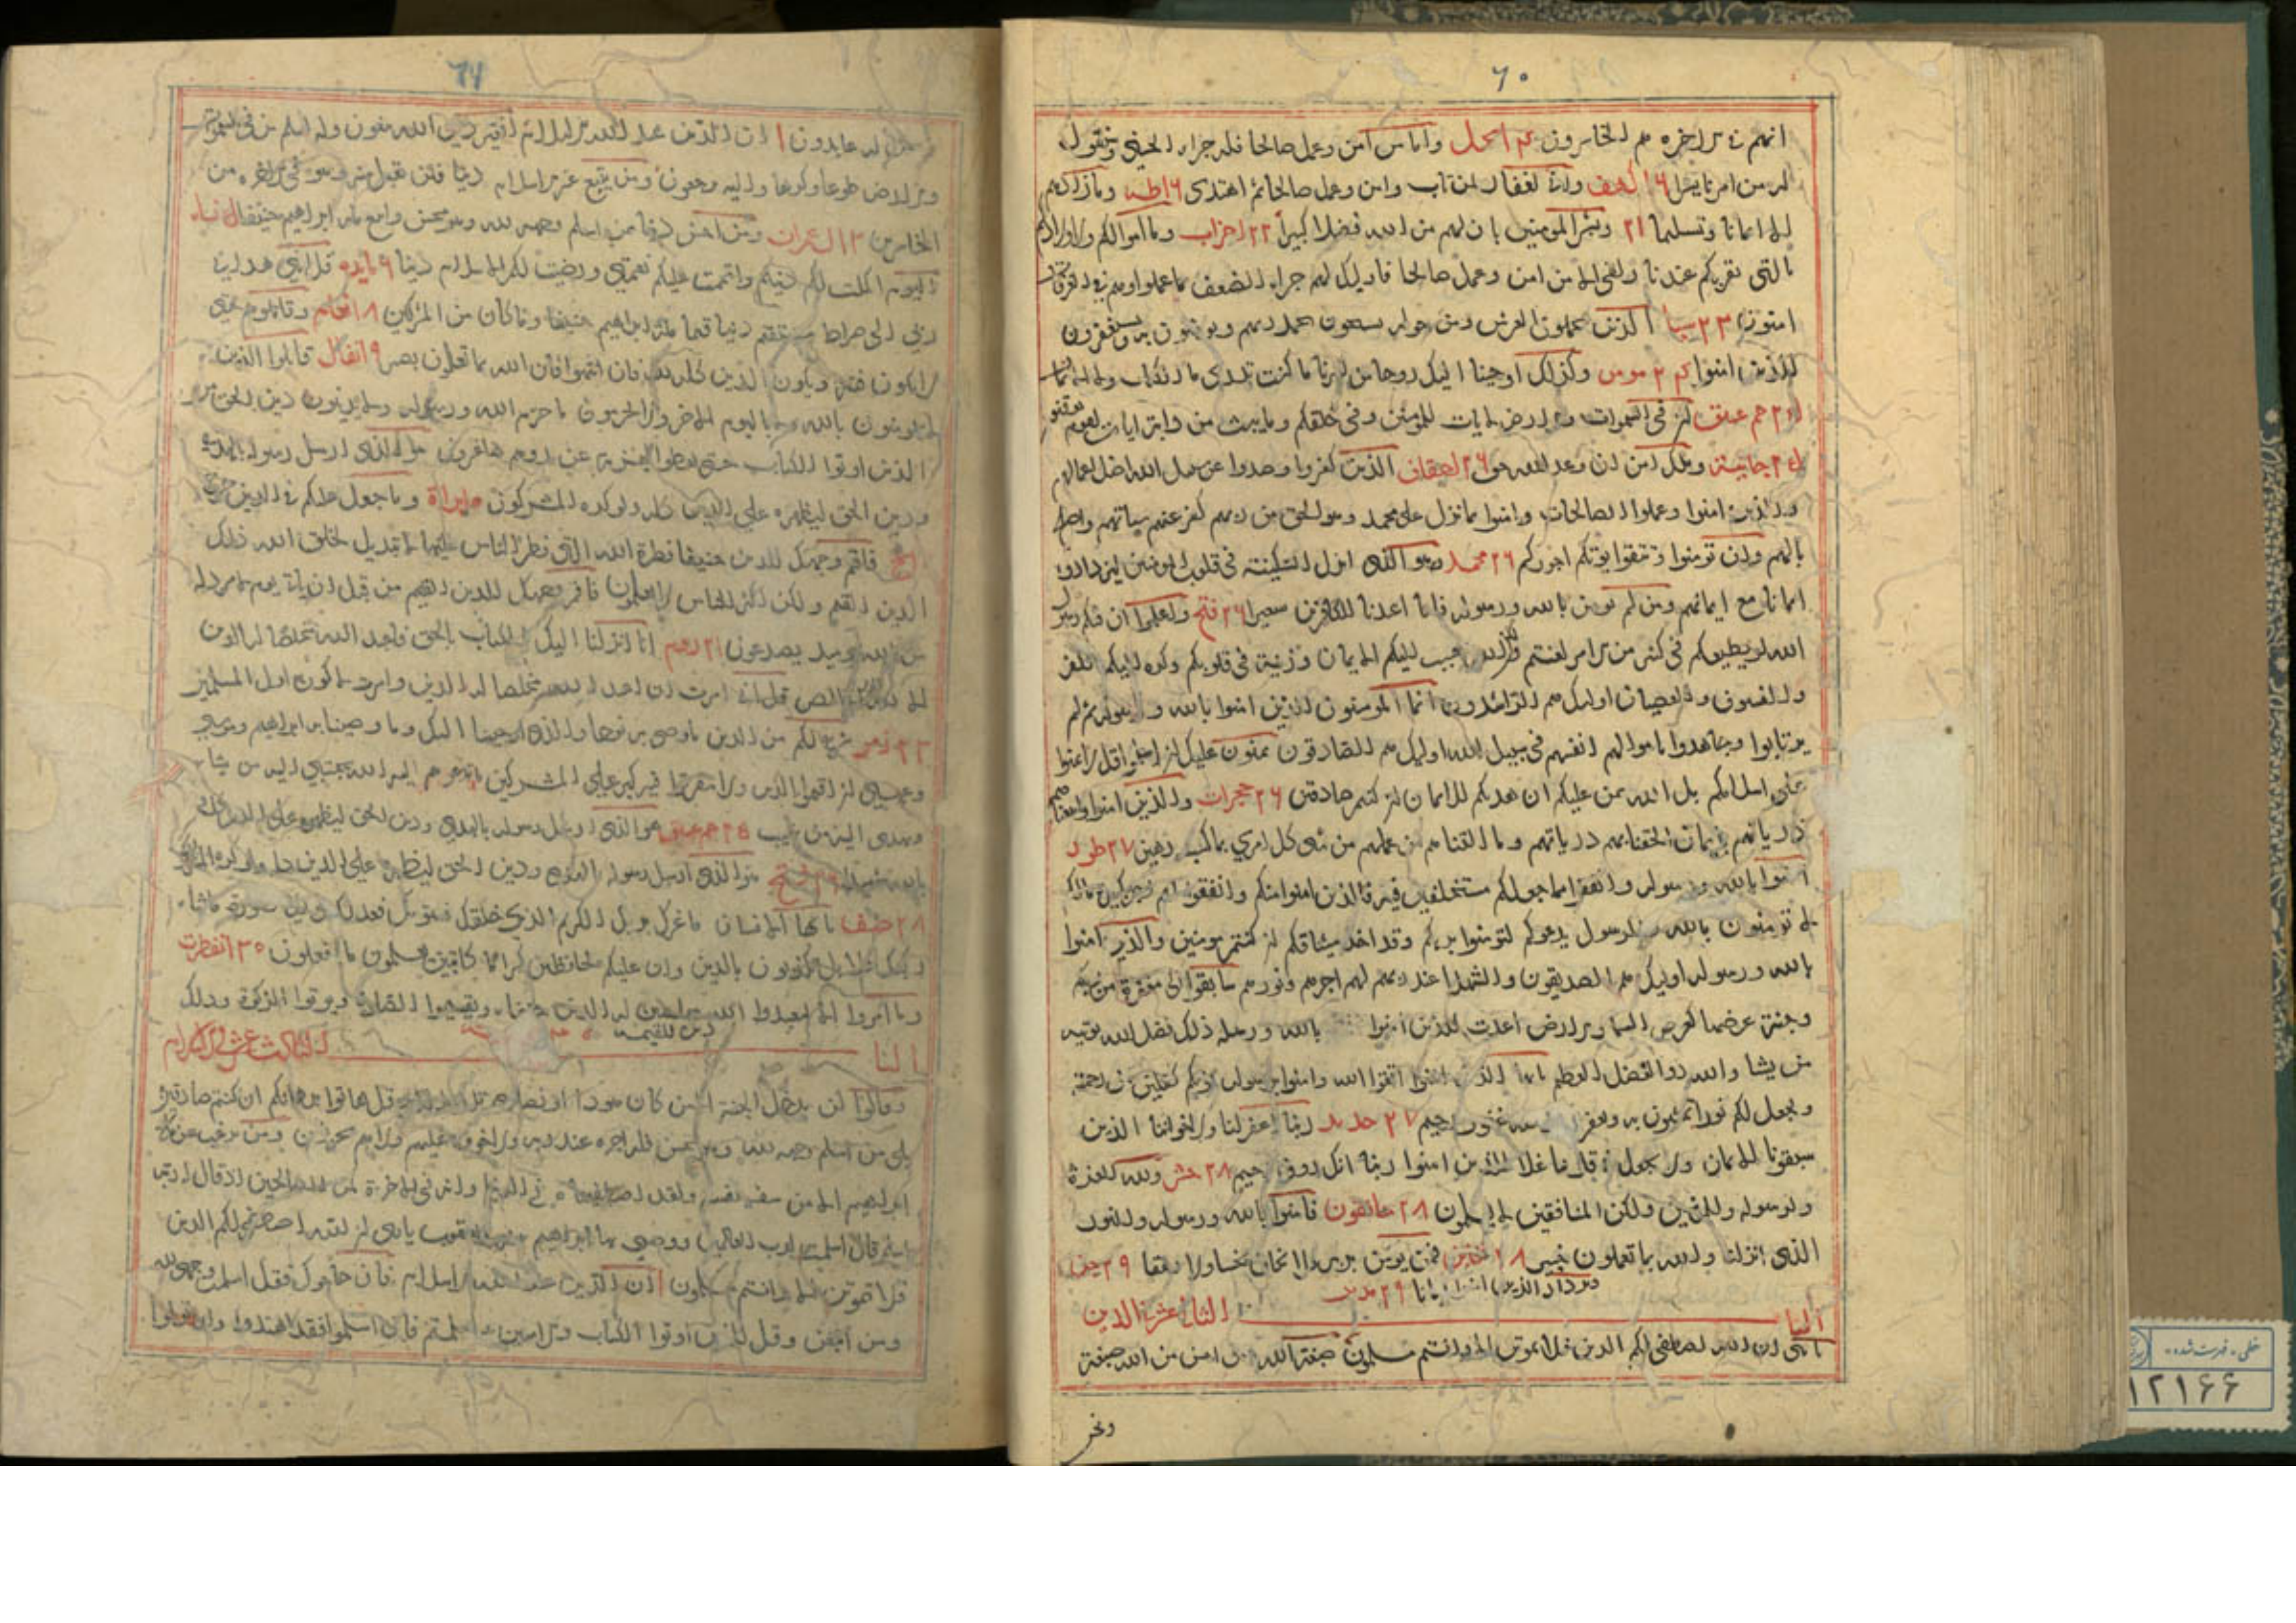 ٦٠
انهم فی الاخره هم الخاسرون النحل واما من آمن وعمل صالحا فله جزاء الحسنی وسنقول
له من امرنا یسرا ١٦ کهف وانی لغفار لمن تاب وامن وعمل صالحا ثم اهتدی ١٦ طه وما زادهم
الا ایمانا وتسلیما ٢١ وبشر المومنین بان لهم من الله فضلا کبیرا ٢٢ احزاب وما اموالکم ولا اولادکم
بالتی تقربکم عندنا زلفی الا من امن وعمل صالحا فاولیک لهم جزاء الضعف بما عملوا وهم فی الغرفات
امنون ٢٣ سبا الذین یحملون العرش ومن حوله یسبحون بحمد ربهم ویومنون به ویستغفرون
للذین امنوا ٢٤ مومن وکذلک اوحینا الیک روحا من امرنا ما کنت تدری ما الکتاب ولا الایمان
٢٥ حم عسق ان فی السموات والارض لایات للمومنین وفی خلقکم وما یبث من دابة ایات لقوم یوقنون
٢٥ جاثیة ویلک امن ان وعد الله حق ٢٦ احقاف الذین کفروا وصدوا عن سبیل الله اضل اعمالهم
والذین امنوا وعملوا الصالحات وامنوا بما نزل علی محمد وهو الحق من ربهم کفر عنهم سیاتهم واصلح
بالهم وان تومنوا وتتقوا یوتکم اجورکم ٢٦ محمد هو الذی انزل السکینة فی قلوب المومنین لیزدادوا
ایمانا مع ایمانهم ومن لم یومن بالله ورسوله فانا اعتدنا للکافرین سعیرا ٢٦ فتح واعلموا ان فیکم رسول
الله لو یطیعکم فی کثیر من الامر لعنتم ولکن الله حبب الیکم الایمان وزینه فی قلوبکم وکره الیکم الکفر
والفسوق والعصیان اولیک هم الراشدون انما المومنون الذین امنوا بالله ورسوله ثم لم
یرتابوا وجاهدوا باموالهم انفسهم فی سبیل الله اولیک هم الصادقون یمنون علیک ان اسلموا قل لا تمنوا
علی اسلامکم بل الله یمن علیکم ان هدیکم للایمان ان کنتم صادقین ٢٦ حجرات والذین امنوا واتبعتهم
ذریاتهم بایمان الحقنا بهم ذریاتهم وما التناهم من عملهم من شی کل امری بما کسب رهین ٢٧ طور
آمنوا بالله ورسوله وانفقوا مما جعلکم مستخلفین فیه فالذین امنوا منکم وانفقوا لهم اجر کبیر ومالکم
لا تومنون بالله والرسول یدعوکم لتومنوا بربکم وقد اخذ میثاقکم ان کنتم مومنین والذین امنوا
بالله ورسوله اولیک هم الصدیقون والشهدا عند ربهم لهم اجرهم ونورهم سابقوا الی مغفرة من ربکم
وجنة عرضها کعرض السما والارض اعدت للذین امنوا بالله ورسله ذلک فضل الله یوتیه
من یشا والله ذوالفضل العظیم یا ایها الذین امنوا اتقوا الله وامنوا برسوله یوتکم کفلین من رحمته
ویجعل لکم نورا تمشون به ویغفر لکم والله غفور رحیم ٢٧ حدید ربنا اغفر لنا ولاخواننا الذین
سبقونا بالایمان ولا تجعل فی قلوبنا غلا للذین امنوا ربنا انک روف رحیم ٢٨ حشر ولله العزة
ولرسوله وللمومنین ولکن المنافقین لا یعلمون ٢٨ منافقون فامنوا بالله ورسوله والنور
الذی انزلنا والله بما تعملون خبیر ٢٨ تغابن فمن یومن بربه فلا یخاف بخسا ولا رهقا ٢٩ جن
ویزداد الذین امنوا ایمانا ٢٩ مدثر
الباب الثانی عشر فی الدین
یا بنی ان الله اصطفی لکم الدین فلا تموتن الا وانتم مسلمون صبغة الله ومن احسن من الله صبغة
ونحن
٦١
له عابدون ١ ان الدین عند الله الاسلام افغیر دین الله یبغون وله اسلم من فی السموات
والارض طوعا وکرها والیه یرجعون ومن یبتغ غیر الاسلام دینا فلن یقبل منه وهو فی الاخره من
الخاسرین ٣ ال عمران ومن احسن دینا ممن اسلم وجهه لله وهو محسن واتبع ملة ابراهیم حنیفا نساء
الیوم اکملت لکم دینکم واتممت علیکم نعمتی ورضیت لکم الاسلام دینا ٦ مایده قل اننی هدانی
ربی الی صراط مستقیم دینا قیما ملة ابراهیم حنیفا وما کان من المشرکین ٨ انعام وقاتلوهم حتی
لا تکون فتنة ویکون الدین کله لله فان انتهوا فان الله بما تعملون بصیر ٩ انفال قاتلوا الذین
لا یومنون بالله ولا بالیوم الاخر ولا یحرمون ما حرم الله ورسوله ولا یدینون دین الحق من
الذین اوتوا الکتاب حتی یعطوا الجزیة عن ید وهم صاغرون هو الذی ارسل رسوله بالهدی
ودین الحق لیظهره علی الدین کله ولو کره المشرکون براة وما جعل علیکم فی الدین من حرج
الحج فاقم وجهک للدین حنیفا فطرة الله التی فطر الناس علیها لا تبدیل لخلق الله ذلک
الدین القیم ولکن اکثر الناس لا یعلمون فاقم وجهک للدین القیم من قبل ان یاتی یوم لا مرد له
من الله یومیذ یصدعون ٢١ روم انا انزلنا الیک الکتاب بالحق فاعبد الله مخلصا له الدین
الا لله الدین الخالص قل انی امرت ان اعبد الله مخلصا له الدین وامرت لان اکون اول المسلمین
٢٣ زمر شرع لکم من الدین ما وصی به نوحا والذی اوحینا الیک وما وصینا به ابراهیم وموسی
وعیسی ان اقیموا الدین ولا تتفرقوا فیه کبر علی المشرکین ما تدعوهم الیه الله یجتبی الیه من یشاء
ویهدی الیه من ینیب ٢٥ حم عسق هو الذی ارسل رسوله بالهدی ودین الحق لیظهره علی الدین کله
بالله شهیدا ٢٦ فتح هو الذی ارسل رسوله بالهدی ودین الحق لیظهره علی الدین کله ولو کره المشرکون
٢٨ صف یا ایها الانسان ما غرک بربک الکریم الذی خلقک فسویک فعدلک فی ای صورة ما شاء
رکبک کلا بل تکذبون بالدین وان علیکم لحافظین کراما کاتبین یعلمون ما تفعلون ٣٠ انفطرت
وما امروا الا لیعبدوا الله مخلصین له الدین حنفاء ویقیموا الصلوة ویوتوا الزکوة وذلک
دین القیمة
الباب الثالث عشر فی الاسلام
وقالوا لن یدخل الجنة الا من کان هودا او نصاری تلک امانیهم قل هاتوا برهانکم ان کنتم صادقین
بلی من اسلم وجهه لله وهو محسن فله اجره عند ربه ولا خوف علیهم ولا هم یحزنون ومن یرغب عن ملة
ابراهیم الا من سفه نفسه ولقد اصطفیناه فی الدنیا وانه فی الاخرة لمن الصالحین اذ قال له ربه
اسلم قال اسلمت لرب العالمین ووصی بها ابراهیم بنیه ویعقوب یا بنی ان الله اصطفی لکم الدین
فلا تموتن الا وانتم مسلمون ١ ان الدین عند الله الاسلام فان حاجوک فقل اسلمت وجهی لله
ومن اتبعن وقل للذین اوتوا الکتاب والامیین ءاسلمتم فان اسلموا فقد اهتدوا وان تولوا
خطی - فهرست شده
١٢١٦٦